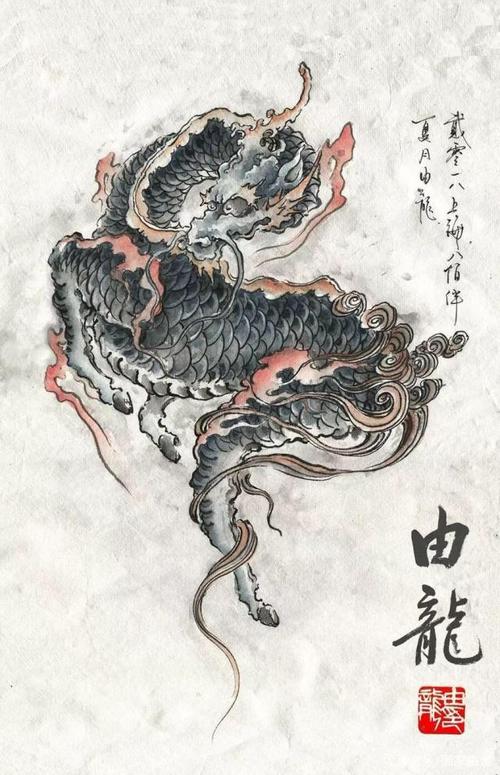 贰零一八上海八佰伴
夏月由龍
由龍